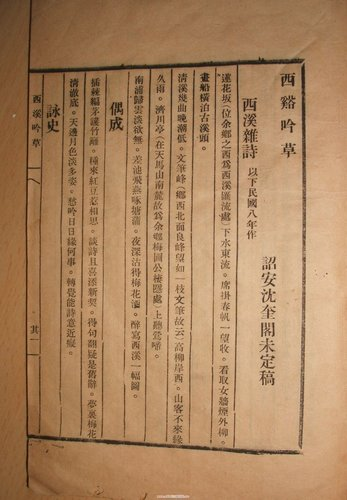 西谿吟草
詔安沈奎閣未定稿
西溪雜詩 以下民國八年作
蓮花坂(位余鄉之西爲西溪匯流處)下水東流。席掛春帆一望收。看取女牆煙外柳。
畫船橫泊古溪頭。
清溪幾曲晚潮低。文筆峰(鄉西北面良峰望如一枝文筆故云)高柳岸西。山客不來綠
久雨。濟川亭(在天馬山南麓故爲余鄉梅圃公棲隱處)上聽鶯啼。
南浦歸雲淡欲無。差池飛燕啄菰蒲。夜深沾得梅花溫。醉寫西溪一幅圖。
偶成
插棘編茅護竹籬。種來紅豆惹相思。談詩且喜添新契。得句翻疑是舊辭。夢裏梅花
清澈底。天邊月色淡多姿。愁吟日日緣何事。轉覺能詩意近癡。
詠史
西溪吟草
其一